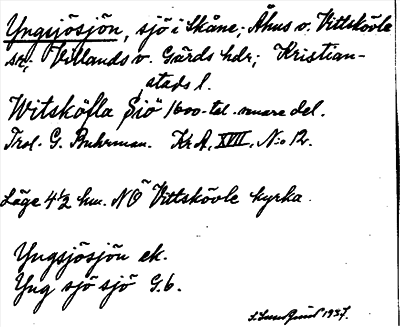 Yngsjösjön, sjö i Skåne; Åhus o. Vittskövle
sn; Villands o. Gärds hdr; Kristian-
stads l.
Witsköfla Siö 1600-tal. senare del.
Trol. G. Buhrman. Kr.A, XVIII, N:o 12.
Läge 4½ km. NÖ Vittskövle kyrka.
Yngsjösjön ek.
Yng sjö sjö G.b.
1937.